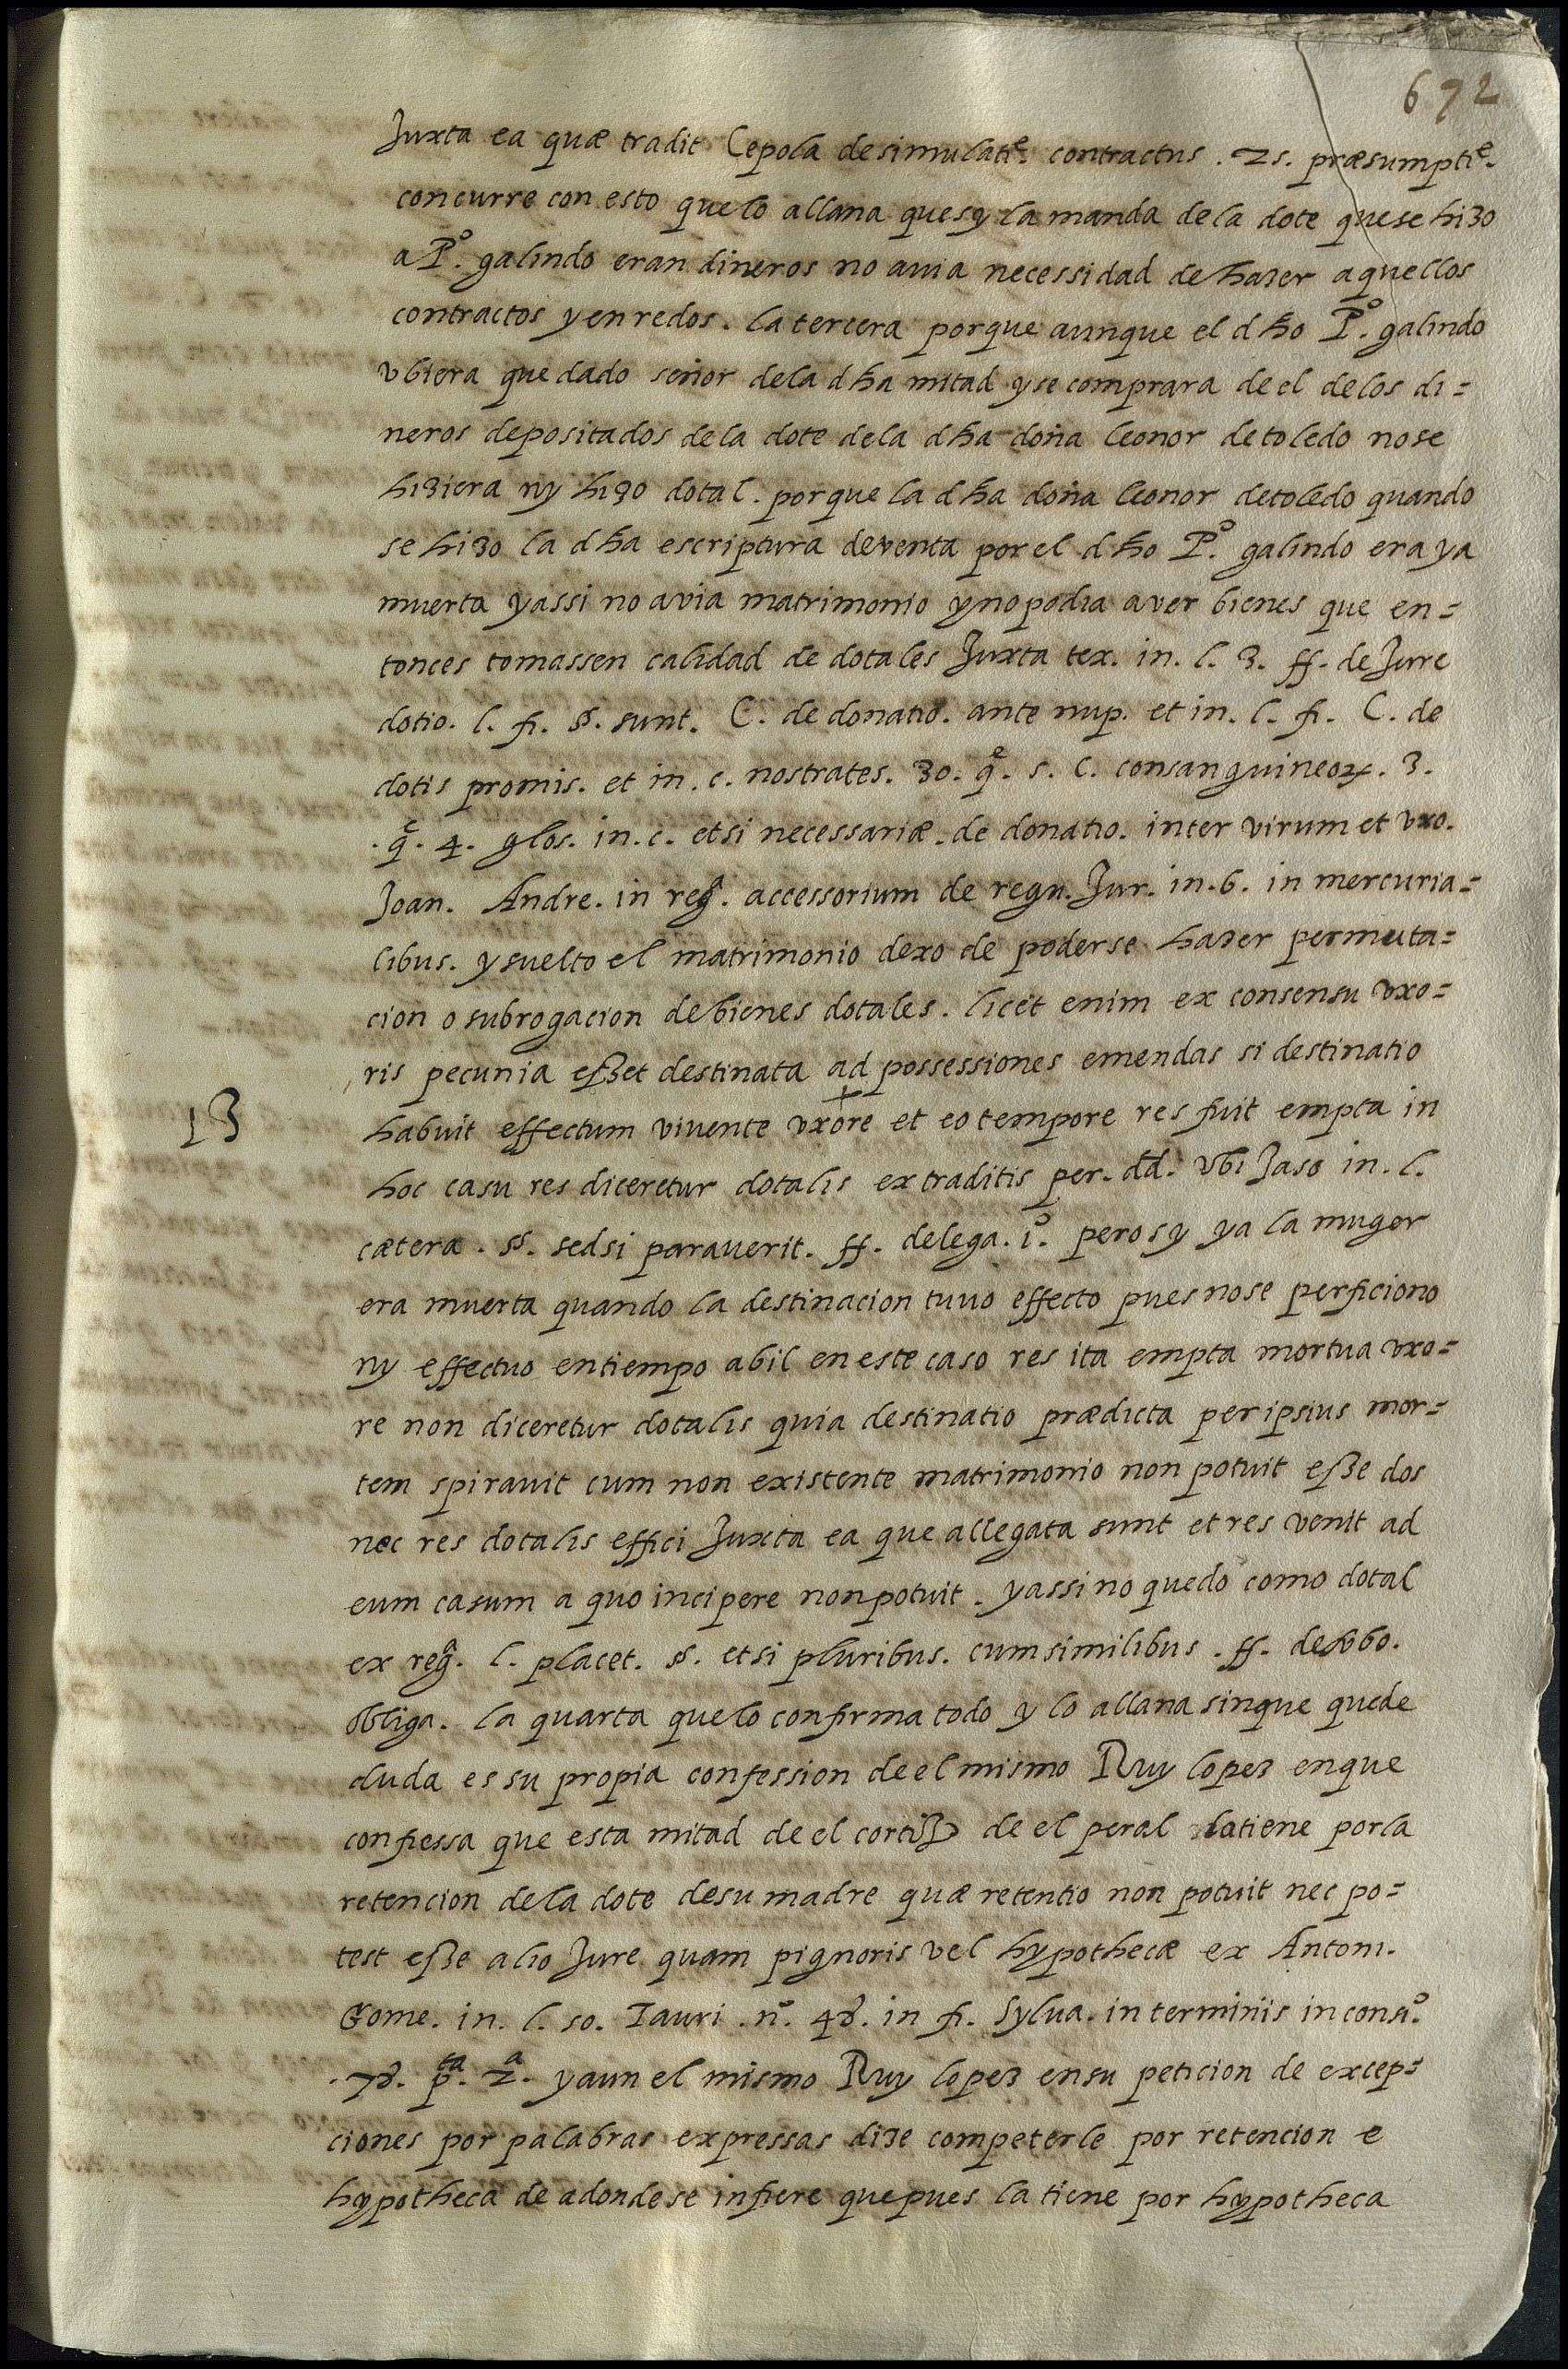 672
Juxta ea quæ tradit Cepola de simulatie. contractus. 25. præsumptie.
concurre con esto que lo allana que sy la manda de la dote que se hizo
a Pº. galindo eran dineros no auia necessidad de hazer aquellos
contractos y enredos. la tercera porque aunque el dho Pº. galindo
vbiera quedado señor de la dha mitad y se comprara de el de los di=
neros depositados de la dote de la dha doña leonor de toledo no se
hiziera ny hizo dotal. porque la dha doña leonor de toledo quando
se hizo la dha escriptura de venta por el dho Pº. galindo era ya
muerta y assi no avia matrimonio y no podia aver bienes que en=
tonces tomassen calidad de dotales Juxta tex. in. l. 3. ff. de Jure
dotio. l. fi. §. sunt. C. de donatio. ante nup. et in. l. fi. C. de
dotis promis. et in. c. nostrates. 30. qe. 5. C. consanguineoꝝ. 3.
.qe. 4. glos. in. c. etsi necessariæ. de donatio. inter virum et vxo.
Joan. Andre. in regª. accessorium de regu. Jur. in. 6. in mercuria=
libus. y suelto el matrimonio dexo de poderse hazer permuta=
cion o subrogacion de bienes dotales. licet enim ex consensu vxo=
ris pecunia eßet destinata ad possessiones emendas si destinatio
13 habuit effectum vivente vxore et eo tempore res fuit empta in
hoc casu res diceretur dotalis ex traditis per. dd. vbi Jaso in. l.
cætera. §. sed si parauerit. ff. de lega. 1º. pero sy ya la muger
era muerta quando la destinacion tuuo effecto pues no se perficiono
ny effectuo en tiempo abil en este caso res ita empta mortua vxo=
re non diceretur dotalis quia destinatio prædicta per ipsius mor=
tem spiravit cum non existente matrimonio non potuit eße dos
nec res dotalis effici Juxta ea que allegata sunt et res venit ad
eum casum a quo incipere non potuit. y assi no quedo como dotal
ex regª. l. placet. §. etsi pluribus. cum similibus. ff. de vbo.
obliga. la quarta que lo confirma todo y lo allana sin que quede
duda es su propia confession de el mismo Ruy lopez en que
confiessa que esta mitad de el cortiJo de el peral la tiene por la
retencion de la dote de su madre quæ retentio non potuit nec po=
test eße alio Jure quam pignoris vel hypothecæ ex Antoni.
Gome. in. l. 50. Tauri. nº. 48. in fi. Sylua. in terminis in consiº.
.78. pta. 2ª. y aun el mismo Ruy lopez en su peticion de excep=
ciones por palabras expressas dize competerle por retencion e
hypotheca de adonde se infiere que pues la tiene por hypotheca